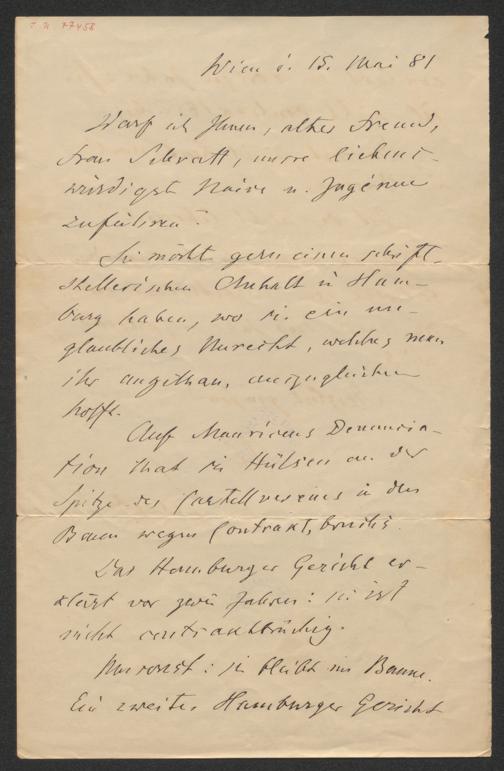 I.N. 77458
Wien d. 15. Mai 81
Darf ich Ihnen, alter Freund,
Frau Schratt, unsre liebens-
würdigste Naive u. Ingénue
zuführen?
Sie möcht gern einen schrift-
stellerischen Anhalt in Ham-
burg haben, wo sie ein un-
glaubliches Unrecht, welches man
ihr angethan, auszugleichen
hofft.
Auf Maurices Denuncia-
tion that sie Hülsen an der
Spitze des Cartellvereines in den
Bann wegen Contraktbruchs.
Das Hamburger Gericht er-
klärt vor zwei Jahren: sie ist
nicht contraktbrüchig.
Umsonst: sie bleibt im Banne.
Ein zweites Hamburger Gericht